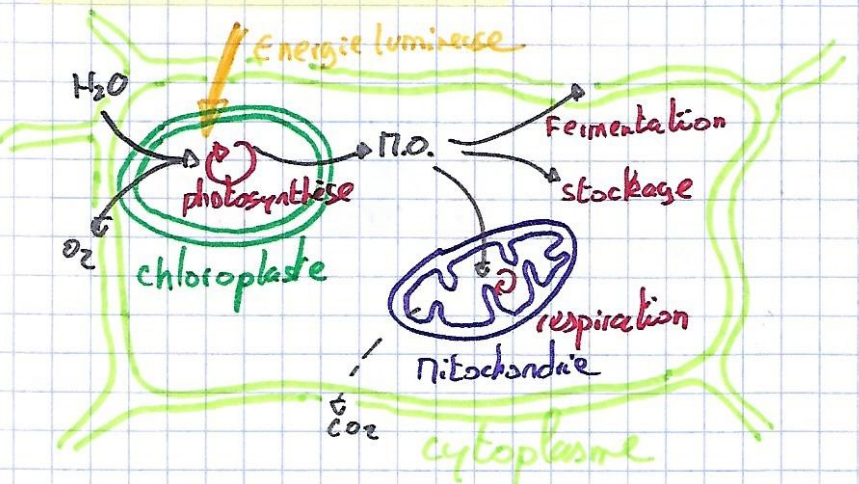 Energie lumineuse
H₂O
M.O.
Fermentation
photosynthèse
stockage
O₂
chloroplaste
respiration
mitochondrie
CO₂
cytoplasme